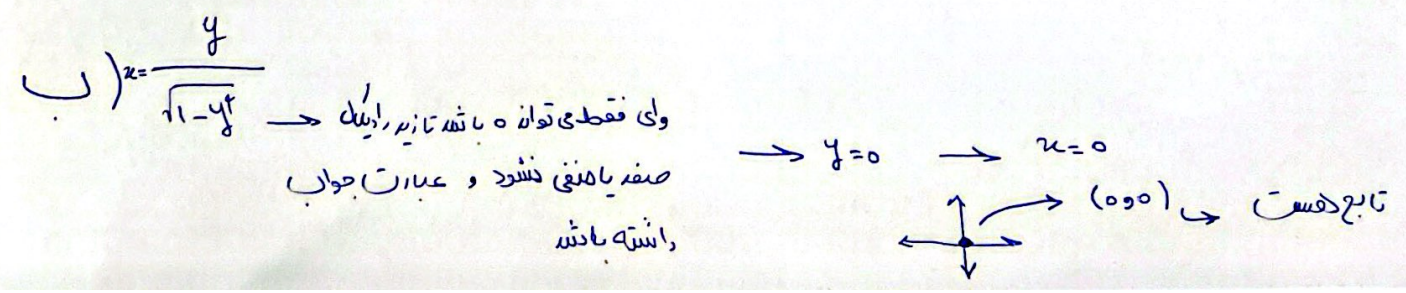 ب) x = y / √(1-y²)
وای فقط می تواند 0 باشد تا زیر رادیکال
صفر یا منفی نشود و عبارت جواب
داشته باشد
→ y=0 → x=0
(0 و 0) → تابع هست